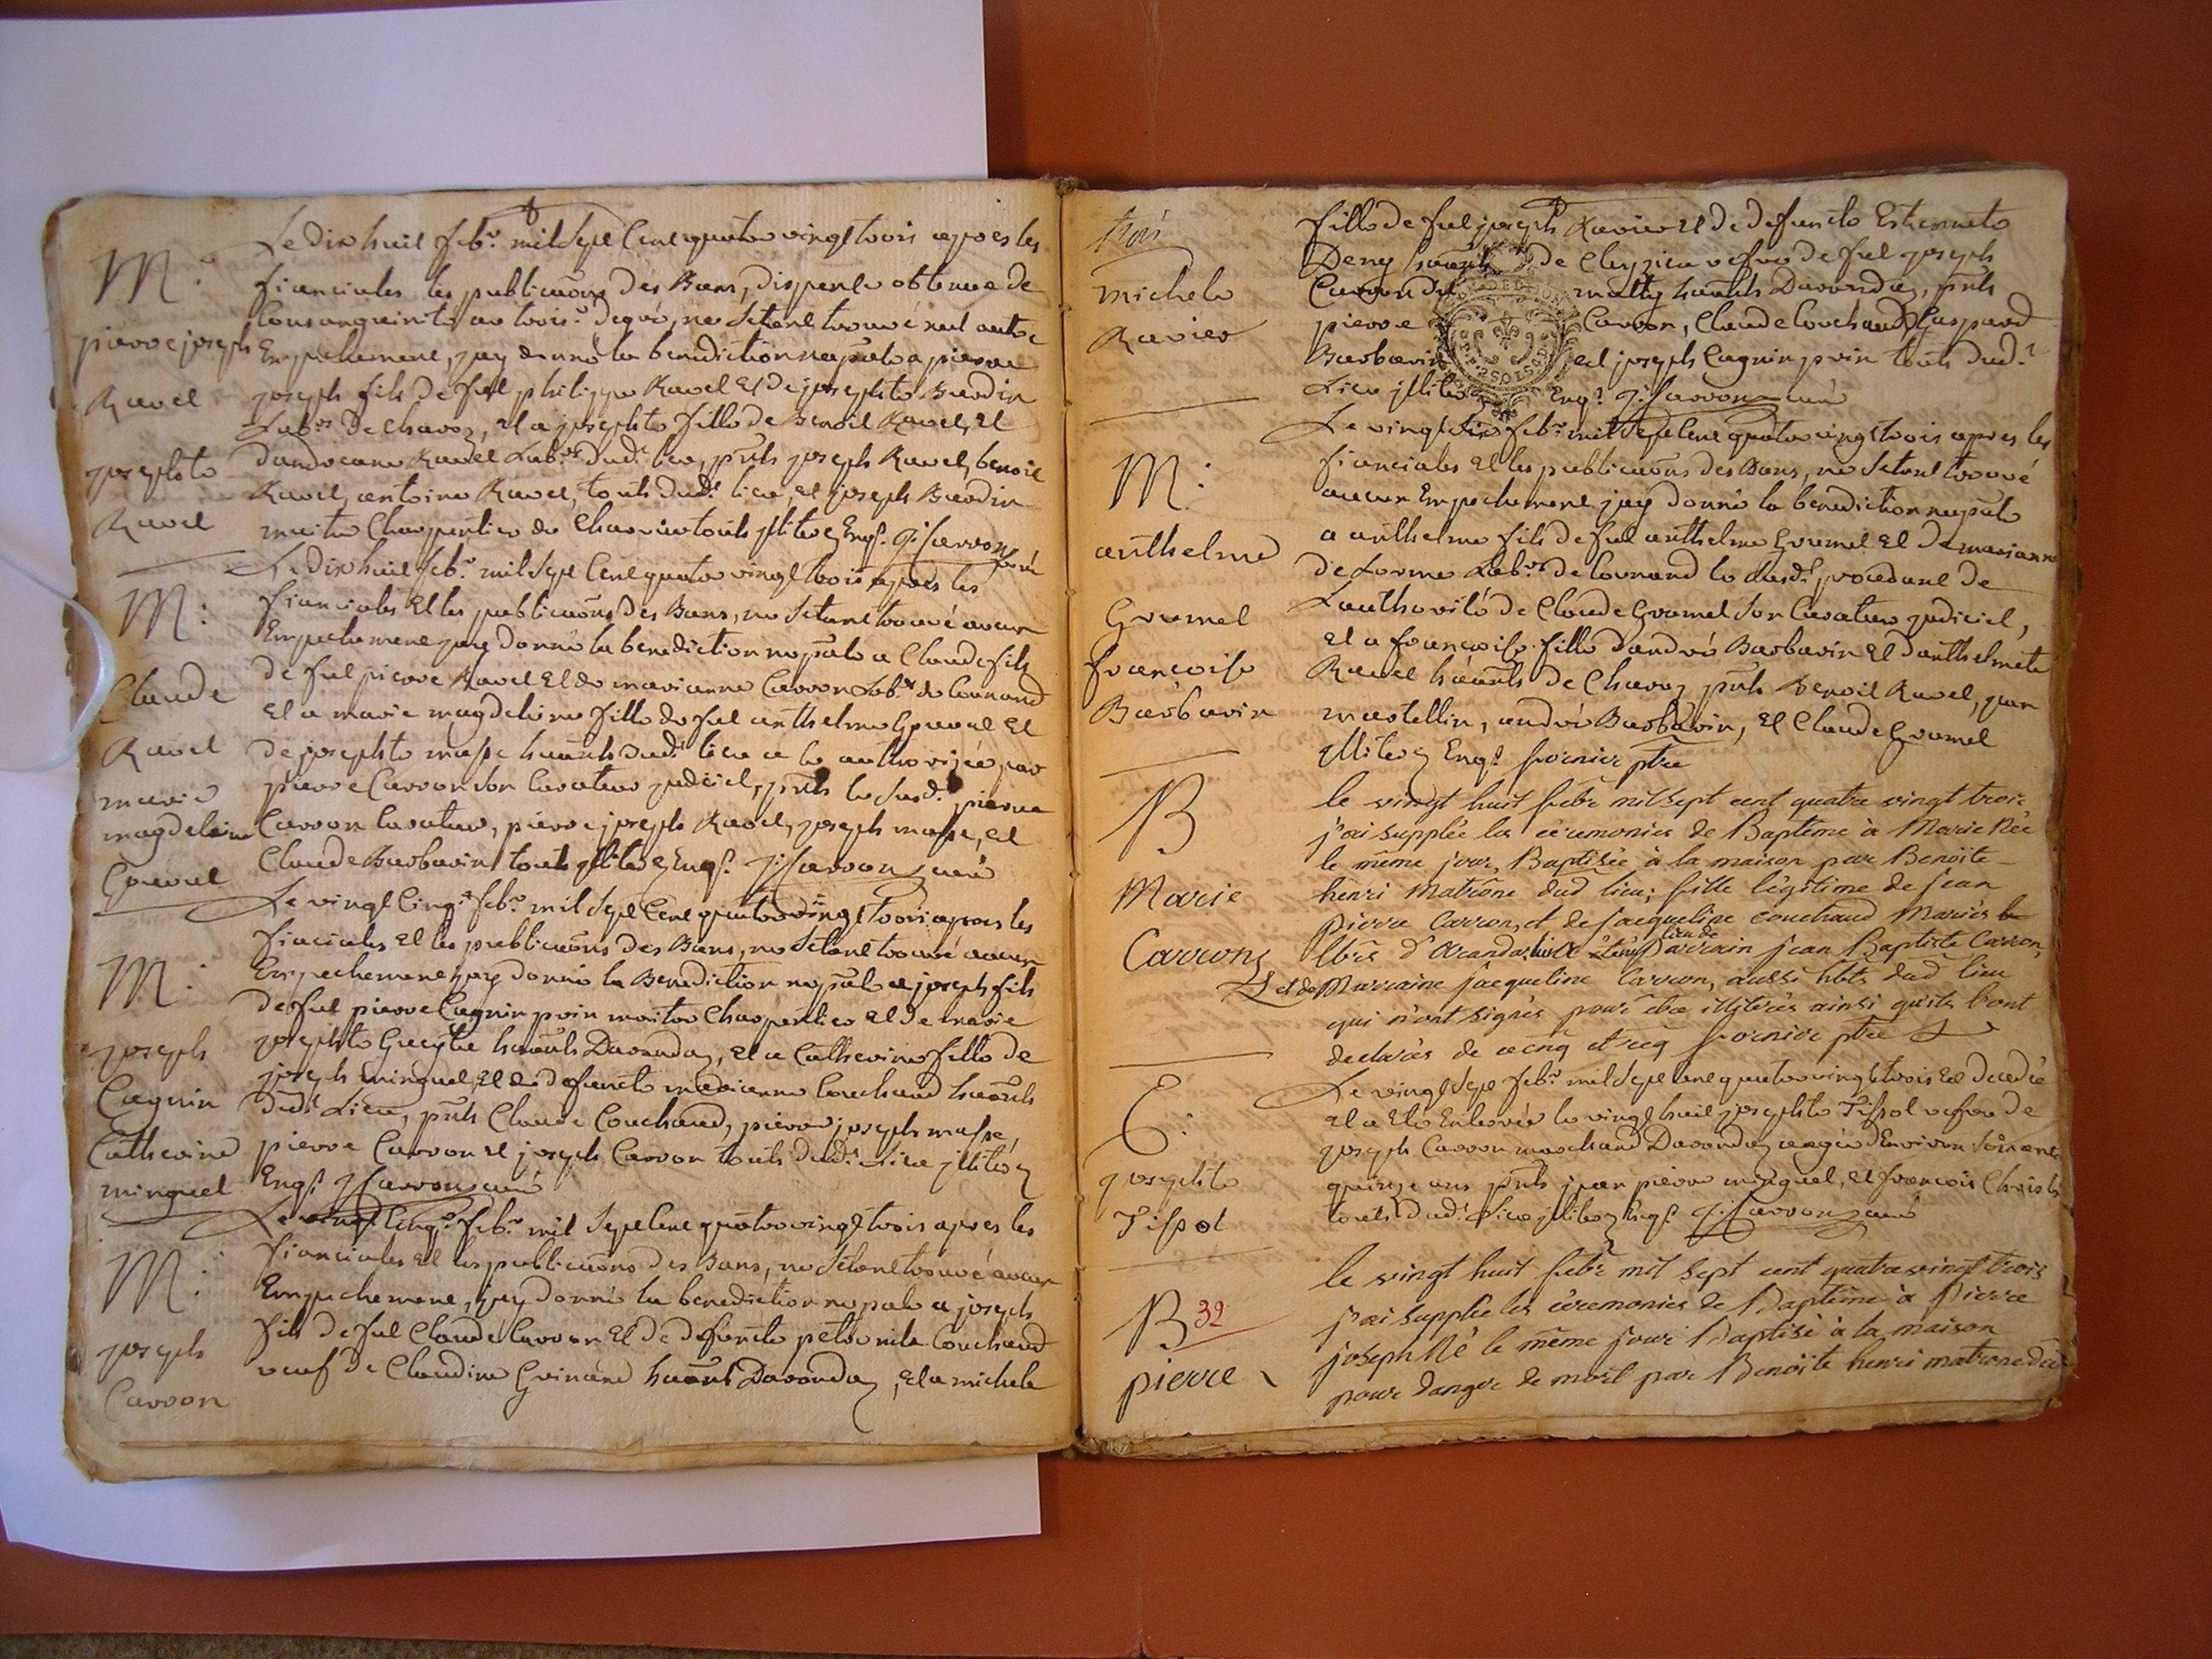 M.
pierre joseph
Ravel
josephte
Ravel
Le dix huit febr. mil sept cent quatre vingt trois apres les
fianciales les publicaõns des Bans, dispense obtenue de
Consanguinité au trois.e degré, ne s'etant trouvé nul autre
Empechement, jay donné la benediction nuptiale a pierre
joseph fils de feu philippe Ravel et de josephte Bardin
Labrs. de Charoz, et a josephte fille de Benoit Ravel, et
dandreane Ravel Labrs. dud. lieu, pnts joseph Ravel, benoit
Ravel, antoine Ravel, touts dud. lieu, et joseph Bardin
maitre Charpentier de touts illiteréz Enqs. J. Carron curé
M:
Claude
Ravel
marie
magdelaine
Gravel
Le dix huit febr. mil sept cent quatre vingt trois apres les
fianciales et les publicaõns des Bans, ne s'etant trouvé aucun
Empechement jay donné la benediction nuptiale a Claude fils
de feu pierre Ravel et de marianne Carron Labrs. de Counand
et a marie magdeleine fille de feu anthelme Gravel et
de josephte masse habitants dud. lieu a ce authorisée par
pierre Carron son Curateur judiciel, pnts le susd. pierre
Carron Curateur, pierre joseph Ravel, joseph masse, et
Claude Barbarin touts illiteréz Enqs. J. Carron curé
M.
joseph
Cagnin
Catherine
minguet
Le vingt cinq.e febr. mil sept cent quatre vingt trois apres les
fianciales et les publicaõns des Bans, ne s'etant trouvé aucun
Empechement jay donné la Benediction nuptiale a joseph fils
de feu pierre Cagnin prin maitre Charpentier et de marie
josephte habitants Darandaz, et a Catherine fille de
joseph minguet, et de defuncte marianne Couchand habitants
dud. Lieu, pnts Claude Couchand, pierre joseph masse,
pierre Carron et joseph Carron touts dud. Lieu illiteréz
Enqs. J. Carron curé
M:
joseph
Carron
Le vingt cinq.e febr. mil sept cent quatre vingt trois apres les
fianciales et les publicaõns des Bans, ne s'etant trouvé aucun
Empechement, jay donné la benediction nuptiale a joseph
fils de feu Claude Carron et de defuncte petronile Couchand
veuf de Claudine Guinand habitant Darandaz, et a michele
trois
michele
Ravier
fille de feu joseph Ravier et de defuncte Estiennete
Deny de Cleyzieu vefve de feu joseph
Carron habitants Darandaz, pnts
pierre Carron, Claude Couchand, Gaspard
Barbarin et joseph Cagnin prin touts dud.
Lieu illiteréz Enqs. J. Carron curé
M:
anthelme
Gramel
francoise
Barbarin
Le vingt febr. mil sept cent quatre vingt trois apres les
fianciales et les publicaõns des Bans, ne s'etant trouvé
aucun Empechement jay donné la benediction nuptiale
a anthelme fils de feu anthelme Gramel et de marianne
de Lorme Labrs. de Counand le susd. procedant de
Lauthorité de Claude Gramel son Curateur judiciel,
et a francoise fille dandré Barbarin et danthelmete
Ravel habitants de Charoz pnts Benoit Ravel, jean
martellin, andré Barbarin, et Claude Gramel
illiteréz Enqs. fornier ptre
B
Marie
Carron
le vingt huit febr mil sept cent quatre vingt trois
j'ai supplée les ceremonies de Baptême à Marie Née
le même jour, Baptisée à la maison par Benoîte
henri Matrône dud lieu; fille légitime de jean
pierre Carron, et de jacqueline couchaud Mariés
lbrs d'Aranda; Parrain jean Baptiste Carron,
et de Marraine jacqueline Carron, aussi hbts dud lieu
qui n'ont signés pour être illitérés ainsi qu'ils l'ont
declarés de ce enq et req fornier ptre
E:
josephte
Tissot
Le vingt sept febr. mil sept cent quatre vingt trois est decedée
et a Eté Enterrée le vingt huit josephte Tissot vefve de
joseph Carron marchand Darandaz aagée d'Environ soixante
quinze ans pnts jean pierre minguet, et francois
touts dud. Lieu illiteréz Enqs. J. Carron curé
B 32
pierre
le vingt huit febr mil sept cent quatre vingt trois
j'ai supplée les cérémonies de Baptême à Pierre
joseph Né le même jour Baptisé à la maison
pour danger de mort par Benoîte henri matrone dud